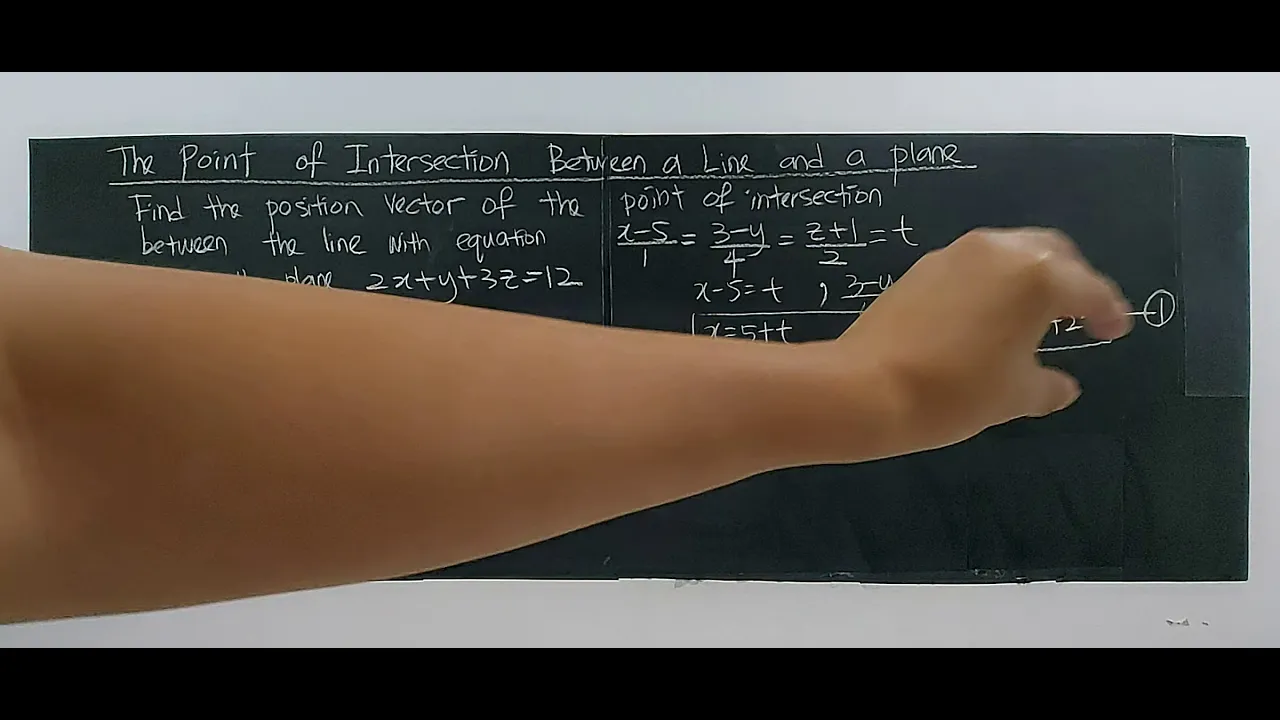 The Point of Intersection Between a Line and a plane
Find the position vector of the
between the line with equation
plane 2x+y+3z=12
point of intersection
x-5/1 = 3-y/4 = z+1/2 = t
x-5=t , 3-y
x=5+t +2 ①